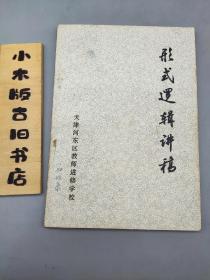 形式逻辑讲稿
天津河东区教师进修学校
小木版古旧书店